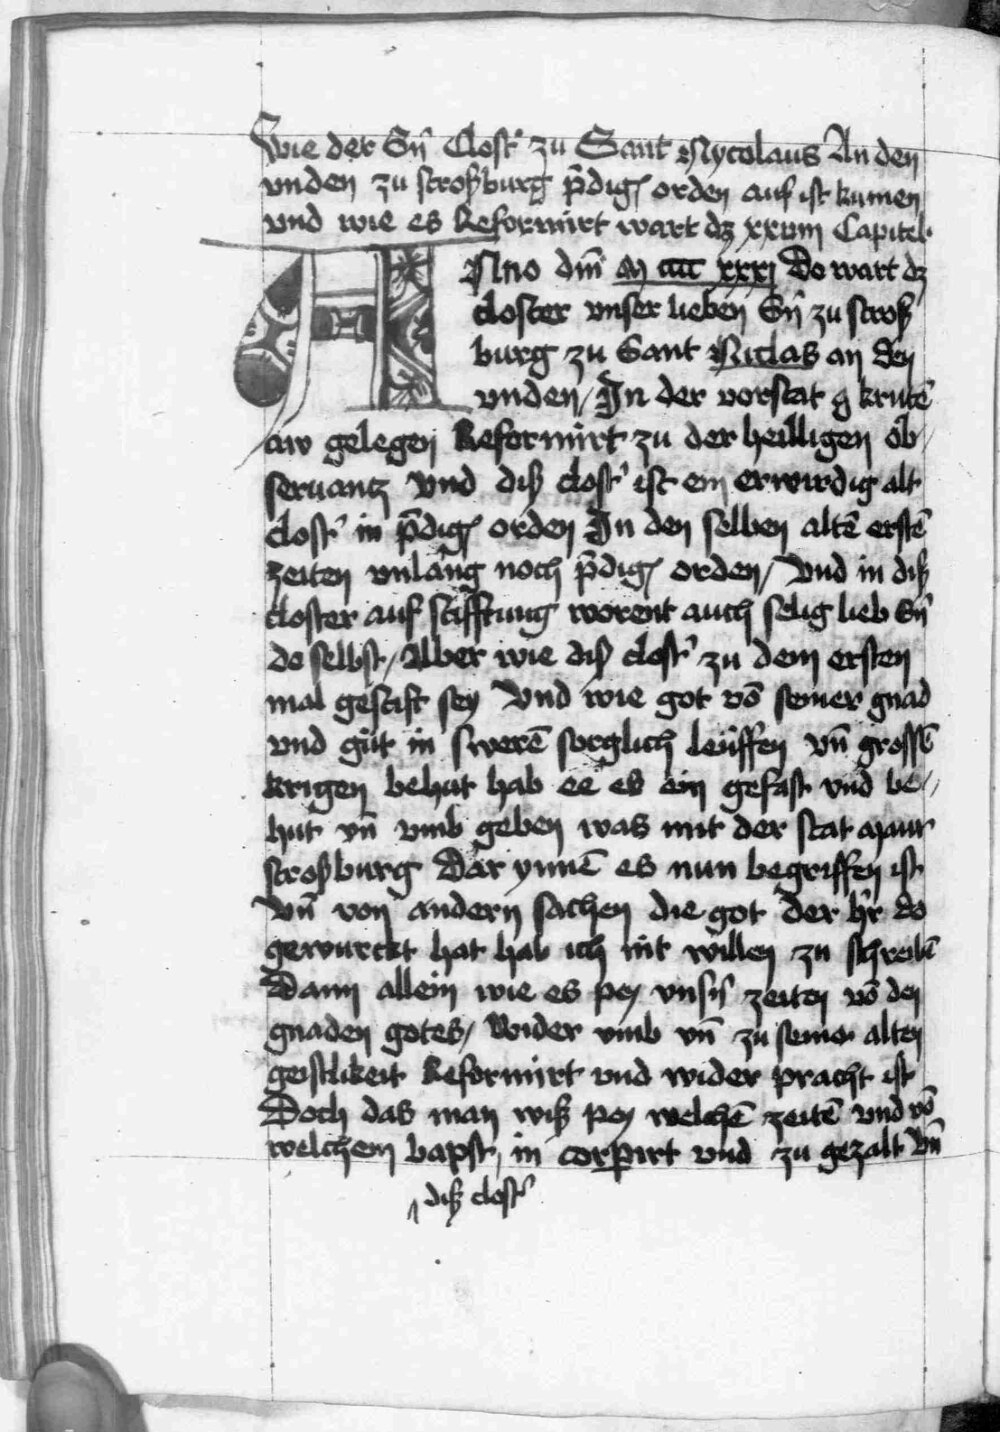 Wie der Sů Clost' zu Sant Nycolaus An den
vnden zu stroßburg p̄dig' orden auf ist kumen
vnd wie es Reformirt wart dz xxviij Capitel·
ANno dm̄ M cccc xxxj Do wart dz
closter vnser lieben Sů zu stroß
burg zu Sant Niclas an den
vnden / In der vorstat g krutē
aw gelegen Reformirt zu der heilligen ob /
seruantz Vnd diß clost' ist ein erwirdig alt
clost' in p̄dig' orden In den selben altē erstē
zeiten vnlang noch p̄dig' orden / Vnd in diß
closter auf stifftung worent auch selig lieb Sů
do selbst / Aber wie diß clost' zu dem ersten
mal gestift sey Vnd wie got vō seiner gnad
vnd güt in swerē sorglich leüffen vn̄ grossē
krigen behut hab ee es ein gefast vnd be /
hut vn̄ vmb geben was mit der stat maur
stroßburg Dar ynnē es nun begriffen ist
Vn̄ von andern sachen die got der h'r do
gewurckt hat hab ich nit willen zu schreibē
Dann allein wie es pey vns'n zeiten vō den
gnaden gotes / Wider vmb vn̄ zu seiner alten
geistlikeit Reformirt vnd wider pracht ist
Doch das man wiß pey welchē zeitē vnd vō
welchem bapst / in corpirt vnd zu gezalt vn̄
diß clost'